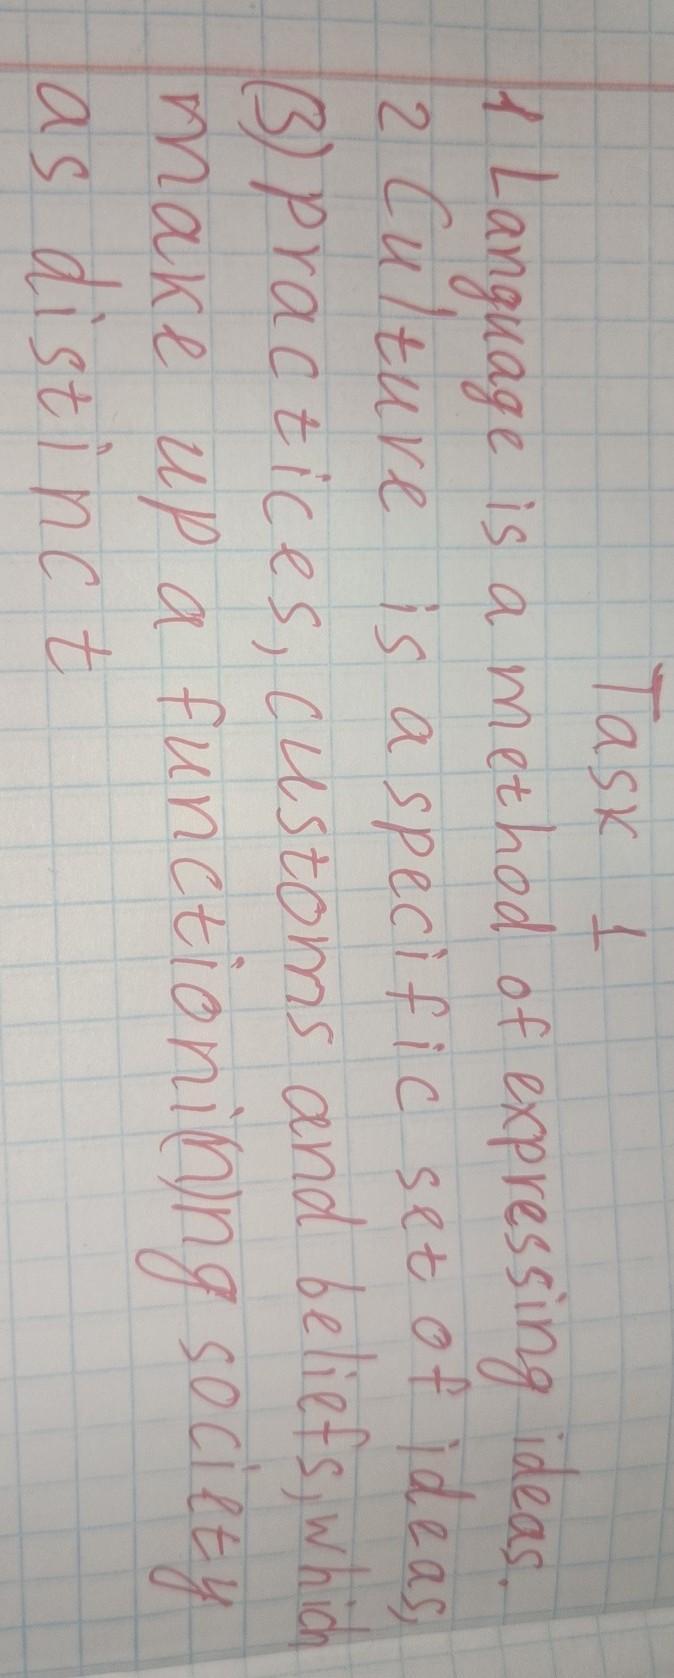 Task 1
1 Language is a method of expressing ideas.
2 Culture is a specific set of ideas,
(3) practices, customs and beliefs, which
make up a functioni(n)ng society
as distinct